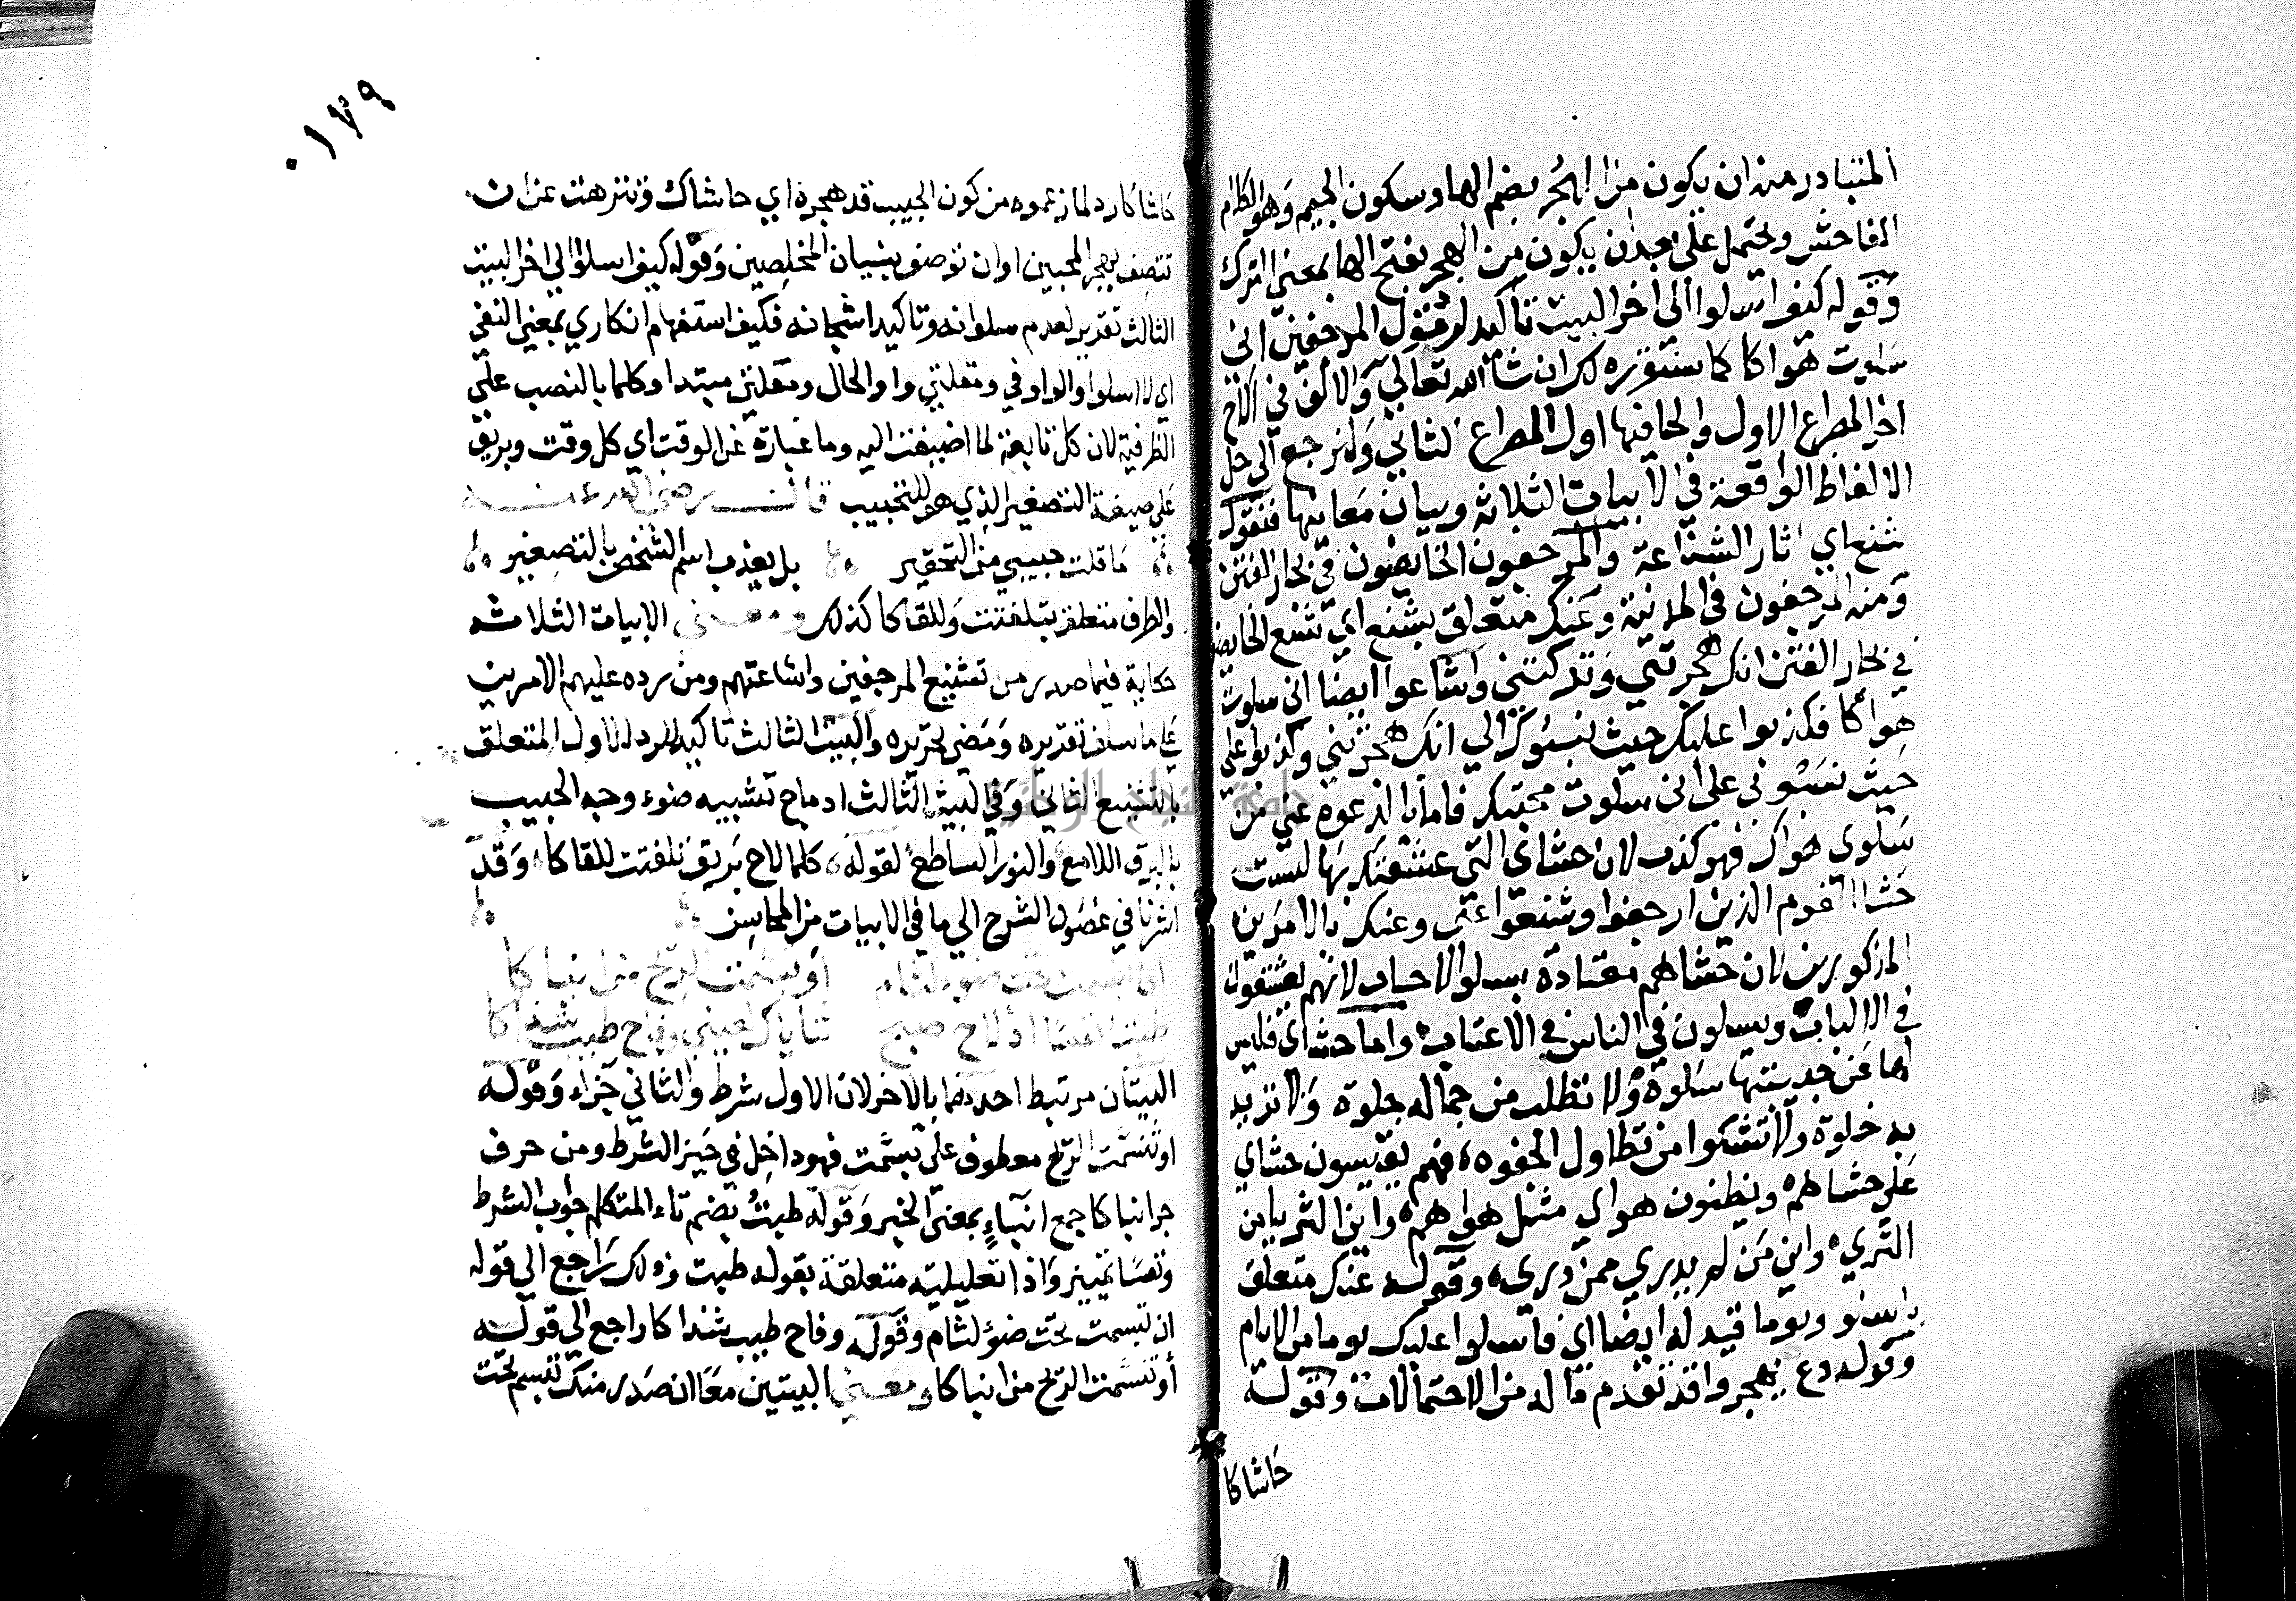 المتبادر منه ان يكون من الهُجْر بضم الها وسكون الجيم وهو الكلام
الفاحش ويحتمل على بعد ان يكون من الهجر بفتح الها بمعني الترك
وقوله كيف اسلوا الى اخر البيت تأكيد لرد قول المرجفين اني
سلوت هواكا كما سنقرره لك ان شا الله تعالى والالف في الاح
اخر المصراع الاول والحا فيها اول المصراع الثاني ولنرجع الى حل
الالفاظ الواقعة في الابيات الثلاثة وبيان معانيها فنقول
شنع اي اثار الشناعة والمرجفون الخايضون في بحار الفتن
ومنه المرجفون في المدينة وعنك متعلق بشنع اي شنع الخايضون
في بحار الفتن انك هجرتني وتركتني واشاعوا ايضا اني سلوت
هواكا فكذبوا عليك حيث نسبوك الي انك هجرتني وكذبوا علي
حيث نسبوني على اني سلوت محبتك فاما ما ادعوه عني من
سلوي هواك فهو كذب لان حشاي التي عشقتك بها ليست
حشا القوم الذين ارجفوا وشنعوا عني وعنك بالامرين
المذكورين لان حشاهم معتادة بسلو الاحباب لانهم يعشقون
في الالباب ويسلون في الناس في الاعتاب واما حشاي فليس
لها عن حديثها سلوة ولا تطلب من جماله جلوة ولا تريد
به خلوة ولا تشكوا من تطاول الجفوه فهم يقيسون حشاي
علي حشاهم ويظنون هواي مثل هواهم واين الثريا من
الثري واين من لم يدري ممن دري وقوله عنك متعلق
باسلو ويوما قيد له ايضا اي فاسلوا عليك يوما من الايام
وقوله دع يهجروا قد تقدم ما له من الاحتمالات وقوله
حاشاكا
٠١٧٩
حاشاكا رد لما زعموه من كون الحبيب قد هجره اي حاشاك وتنزهت عن ان
تتصف بهجر المحبين او ان توصف بنسيان المخلصين وقوله كيف اسلوا الي اخر البيت
الثالث تقرير لعدم سلوانه وتاكيد اشجانه فكيف استفهام انكاري بمعني النفي
اي لا اسلوا والواو في ومقلتي واو الحال ومقلتي مبتدا وكلما بالنصب علي
الظرفية لان كل تابعة لما اضيفت اليه وما عبارة عن الوقت اي كل وقت وبريق
علي صيغة التصغير الذي هو للتحبيب قال رضي الله عنه
ما قلت حبيبي من التحقير بل يعذب اسم الشخص بالتصغير
والطرف متعلق بتلفتت وللقاكا كذلك ومعني الابيات الثلاث
حكاية فيما صدر من تشنيع المرجفين واشاعتهم ومن رده عليهم الامرين
علي ما سلف تقريره ومضي تحريره والبيت الثالث تاكيد للرد الاول المتعلق
بالتشنيع الثاني وفي البيت الثالث ادماج تشبيه ضوء وجه الحبيب
بالبرق اللامع والنور الساطع لقوله كلما لاح بريق تلفتت للقاكا وقد
اشرنا في غضون الشرح الي ما في الابيات من المحاسن
ان تبسمت تحت ضوء لثام او تنسمت الريح من انباكا
طبت نفسا اذ لاح صبح ثناياك لعيني وفاح طيب شذاكا
البيتان مرتبط احدهما بالاخر لان الاول شرط والثاني جزاء وقوله
او تنسَّمت الريح معطوف علي تبسَّمت فهو داخل في حيز الشرط ومن حرف
جر انباكا جمع انباءٍ بمعني الخبر وقوله طبتُ بضم تاء المتكلم جواب الشرط
ونفسًا تمييز واذ تعليلية متعلقة بقوله طبت وذلك راجع الي قوله
إن تبسمت تحت ضوء لثام وقوله وفاح طيب شذاكا راجع الي قوله
أو تنسَّمت الريح من انباكا ومعني البيتين معًا ان صدر منك تبسم تحت